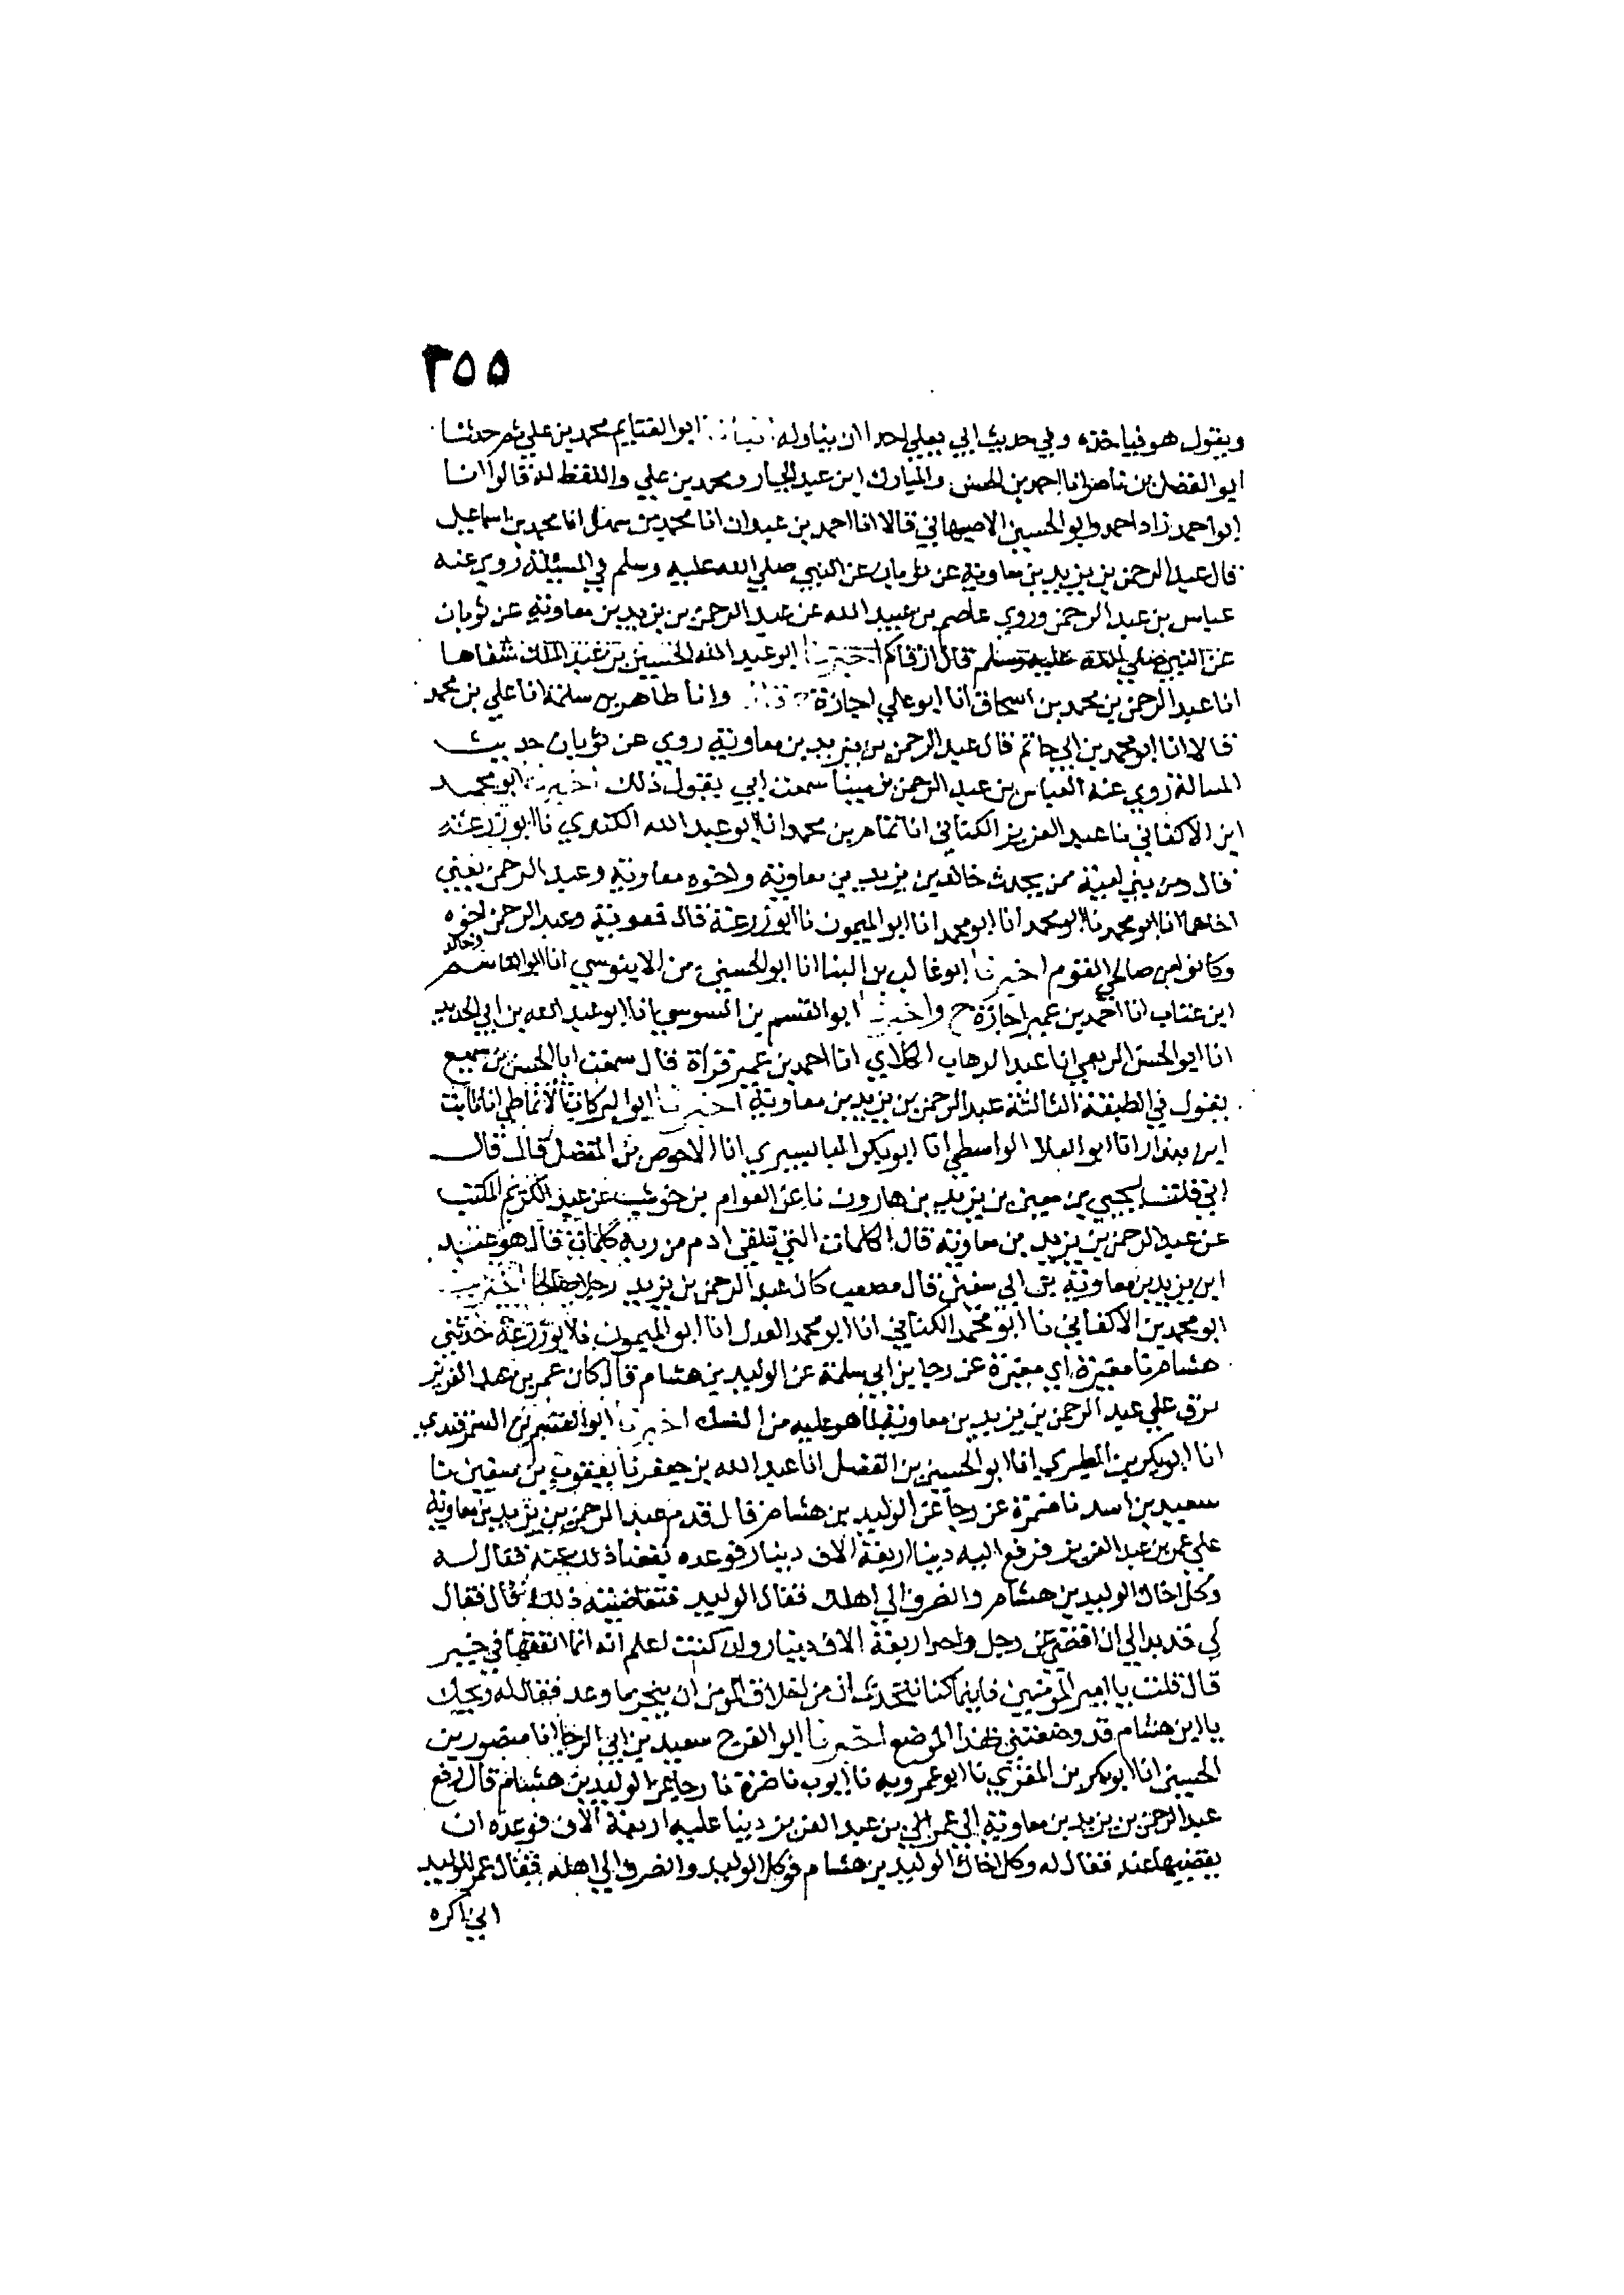 ٣٥٥
ويقول هو فياخذه وفي حديث ابي يعلي احدا ان يناوله انبانا ابو الغنايم محمد بن علي ثم حدثنا
ابو الفضل بن ناصر انا احمد بن الحسن والمبارك ابن عبد الجبار ومحمد بن علي واللفظ له قالوا انا
ابو احمد زاد احمد وابو الحسين الاصبهاني قالا انا احمد بن عبدان انا محمد بن سهل انا محمد بن اسماعيل
قال عبد الرحمن بن يزيد بن معاوية عن ثوبان عن النبي صلي الله عليه وسلم في المسئلة روي عنه
عباس بن عبد الرحمن وروي عاصم بن عبيد الله عن عبد الرحمن بن يزيد بن معاوية عن ثوبان
عن النبي صلي الله عليه وسلم قال اخبرنا ابو عبد الله الحسين بن عبد الملك شفاها
انا عبد الرحمن بن محمد بن اسحاق انا ابو علي اجازة وانا طاهر بن سلمة انا علي بن محمد
قالا انا ابو محمد بن ابي حاتم قال عبد الرحمن بن يزيد بن معاوية روي عن ثوبان حديث
المسالة روي عنه العباس بن عبد الرحمن بن مينا سمعت ابي يقول ذلك اخبرنا ابو محمد
ابن الاكفاني نا عبد العزيز الكتاني انا تمام بن محمد انا ابو عبد الله الكندي نا ابو زرعة
قال ومن بني امية ممن يحدث خالد بن يزيد بن معاوية واخوه معاوية وعبد الرحمن يعني
اخاهما انا ابو محمد نا ابو محمد انا ابو محمد انا ابو الميمون نا ابو زرعة قال فمعوية وعبد الرحمن اخوه
وخالد
وكانوا من صالحي القوم اخبرنا ابو غالب بن البنا انا ابو الحسين بن الابنوسي انا ابو القاسم
ابن عتاب انا احمد بن عمير اجازة ح واخبرنا ابو القسم بن السوسي انا ابو عبد الله بن ابي الحديد
انا ابو الحسن الربعي انا عبد الوهاب الكلابي انا احمد بن عمير قراة قال سمعت ابا الحسن بن سميع
يقول في الطبقة الثالثة عبد الرحمن بن يزيد بن معاوية اخبرنا ابو البركات الانماطي انا ثابت
ابن بندار انا ابو العلا الواسطي انا ابو بكر البابسيري انا الاحوص بن المفضل قال قال
ابي قلت ليحيي بن معين بن يزيد بن هارون نا عن العوام بن حوشب عن عبد الكريم المكتب
عن عبد الرحمن بن يزيد بن معاوية قال الكلمات التي تلقي ادم من ربه كلمات قال هو عبد
ابن يزيد بن معاوية بن ابي سفين قال مصعب كان عبد الرحمن بن يزيد رجلا صالحا اخبرنا
ابو محمد بن الاكفاني نا ابو محمد الكتاني انا ابو محمد العدل انا ابو الميمون نا ابو زرعة حدثني
هشام نا مغيرة اي مغيرة عن رجا بن ابي سلمة عن الوليد بن هشام قال كان عمر بن عبد العزيز
يرق علي عبد الرحمن بن يزيد بن معاوية لما هو عليه من النسك اخبرنا ابو القسم بن السمرقندي
انا ابو بكر بن الطبري انا ابو الحسين بن الفضل انا عبد الله بن جعفر نا يعقوب بن سفين نا
سعيد بن اسد نا ضمرة عن رجا عن الوليد بن هشام قال قدم عبد الرحمن بن يزيد بن معاوية
علي عمر بن عبد العزيز فرفع اليه دينا اربعة الاف دينار فوعده بقضا ذلك عنه فقال له
وكل اخاك الوليد بن هشام وانصرف الي اهلك فقال الوليد فتقاضيته ذلك قال فقال
لي قد بدا لي ان اقضي عن رجل واحد اربعة الاف دينار وان كنت اعلم انه انما انفقها في خير
قال قلت يا امير المومنين فاين ما كنا نتحدث ان من اخلاق المومن ان ينجز ما وعد فقال له ويحك
يا ابن هشام قد وضعتني هذا الموضع اخبرنا ابو الفرج سعيد بن ابي الرجا انا منصور بن
الحسين انا ابو بكر بن المقري نا ابو عمروبه نا ايوب نا ضمرة نا رجا عن الوليد بن هشام قال رفع
عبد الرحمن بن يزيد بن معاوية الي عمر الي بن عبد العزيز دينا عليه اربعة الاف فوعده ان
يقضيها عنه فقال له وكل اخاك الوليد بن هشام فوكل الوليد وانصرف الي اهله فقال عمر للوليد
اني اكره